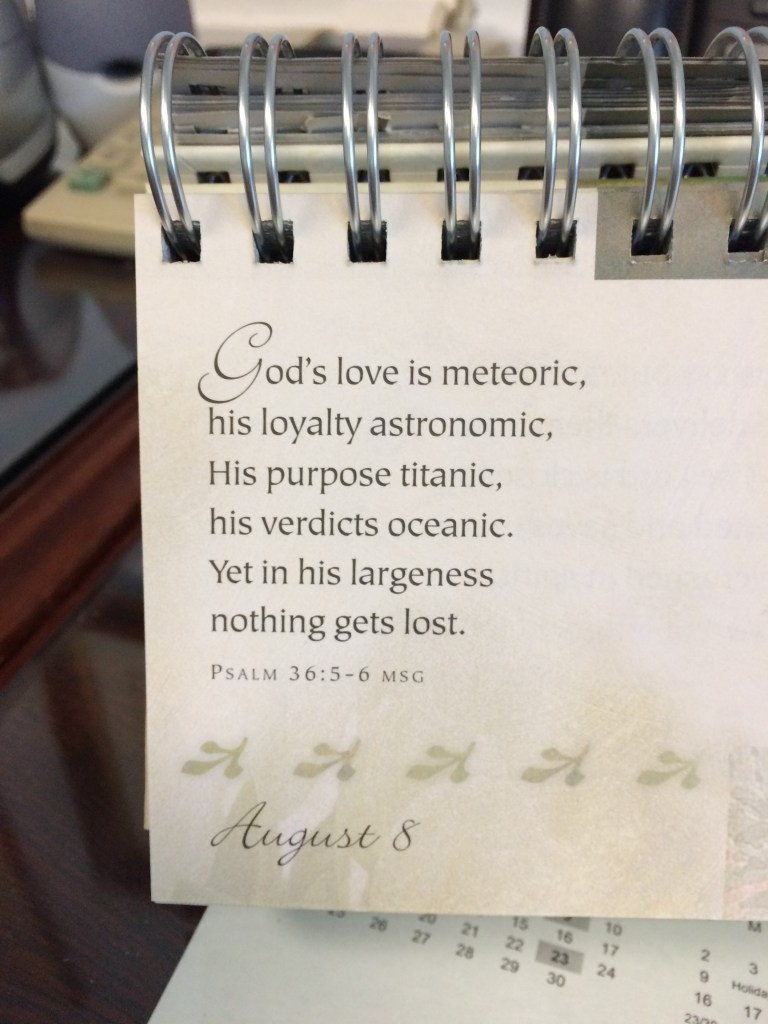 God's love is meteoric,
his loyalty astronomic,
His purpose titanic,
his verdicts oceanic.
Yet in his largeness
nothing gets lost.
PSALM 36:5-6 MSG
August 8
15 10
26 20 21 22 16 17
27 28 29 23 24
30
M
2 3
9 Holida
16 17